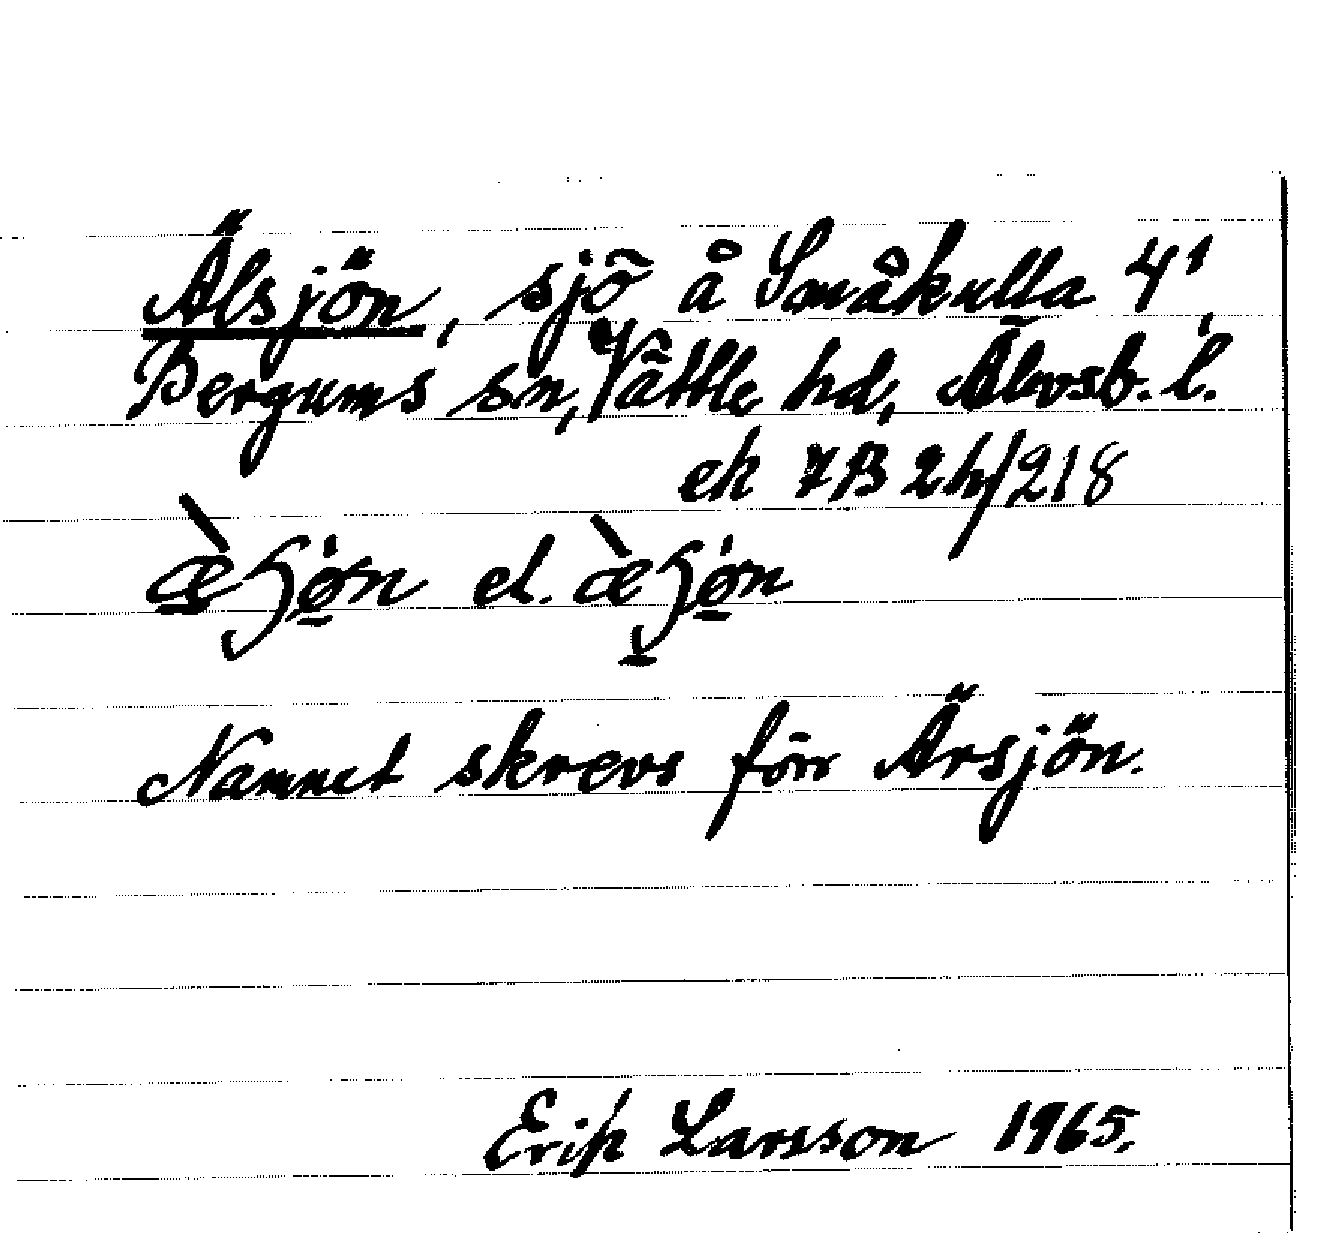 Älsjön, sjö å Småkulla 4¹,
Bergums sn, Vättle hd, Älvsb. l.
ek 7B 2h/218
el.
Namnet skrevs förr Ärsjön.
Erik Larsson 1965.